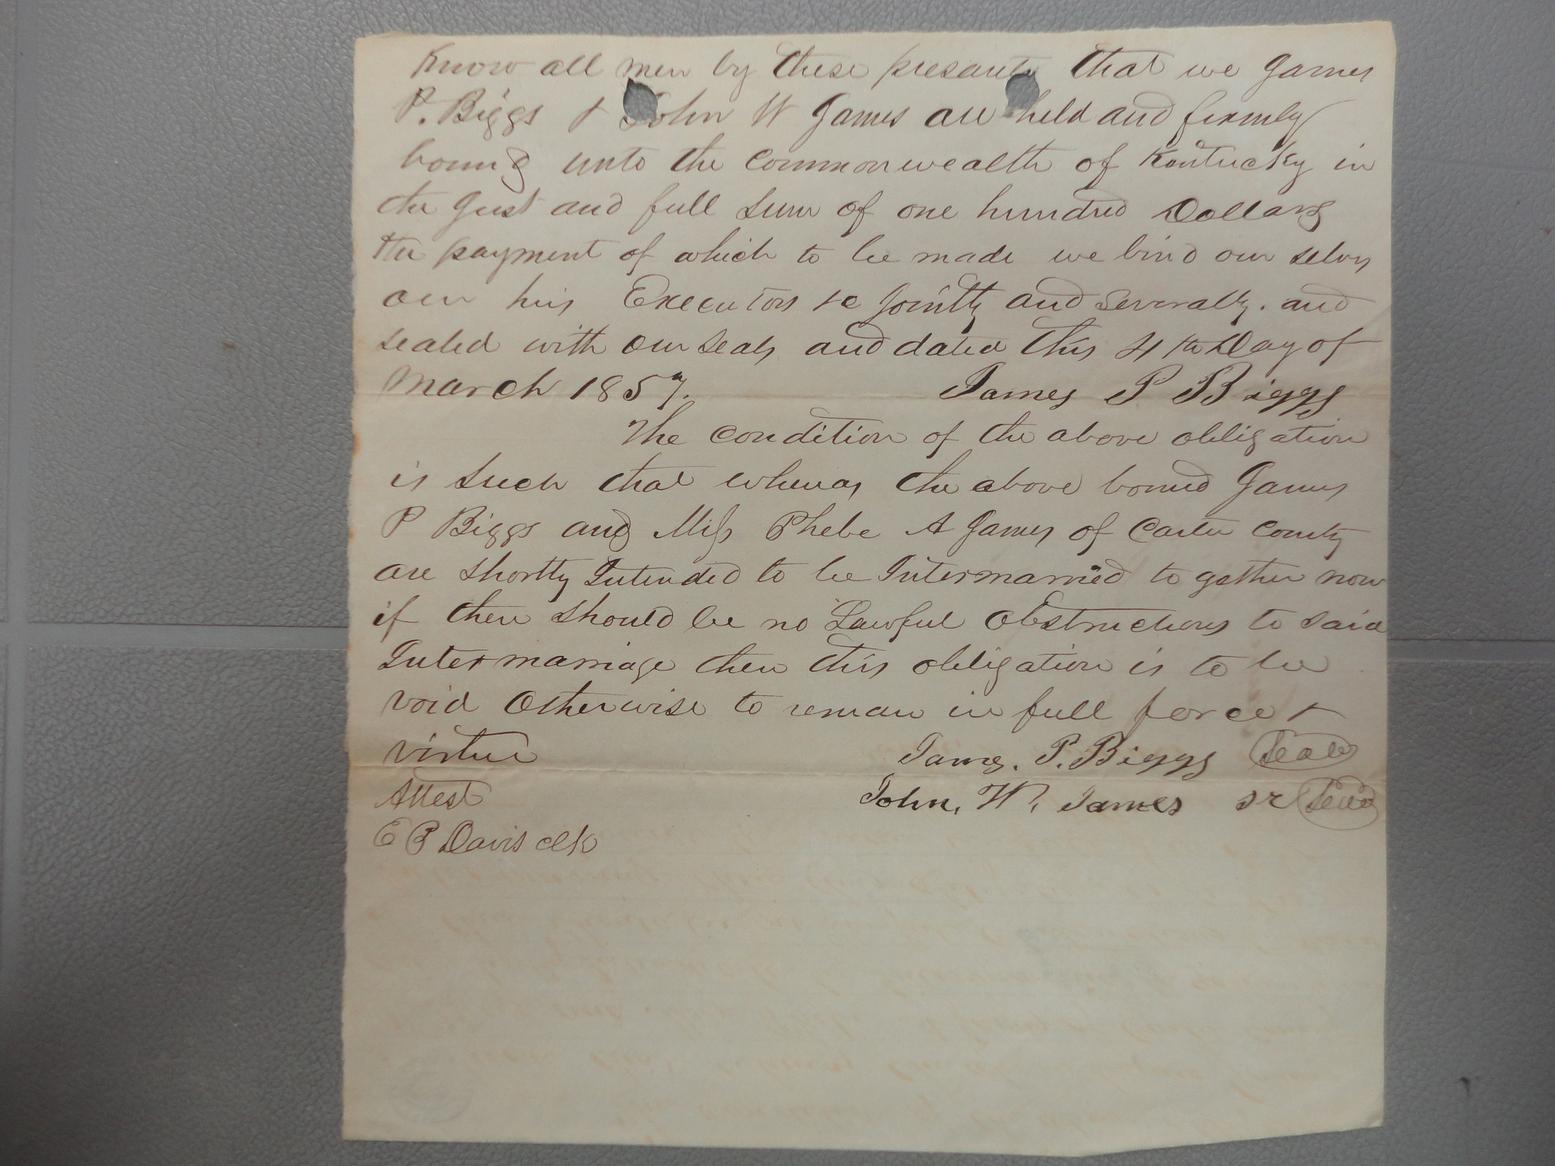 Know all men by these presants that we James
P. Biggs & John W James are held and firmly
bound unto the Commonwealth of Kentucky in
the Just and full Sum of one hundred Dollars
the payment of which to be made we bind our selvs
our hirs Executors &c Jointly and Severally. and
sealed with our Seals and dated this 4th Day of
March 1857. James P Biggs
The Condition of the above obligation
is Such that wheras the above bound James
P Biggs and Miss Phebe A James of Carter County
are Shortly Intended to be Intermarried to gather now
if there Should be no Lawful Obstructions to Said
Intermarriage then this obligation is to be
void Otherwise to reman in full force &
virtue James. P. Biggs Seal
Attest John, W, James sr Seal
E P Davis clk